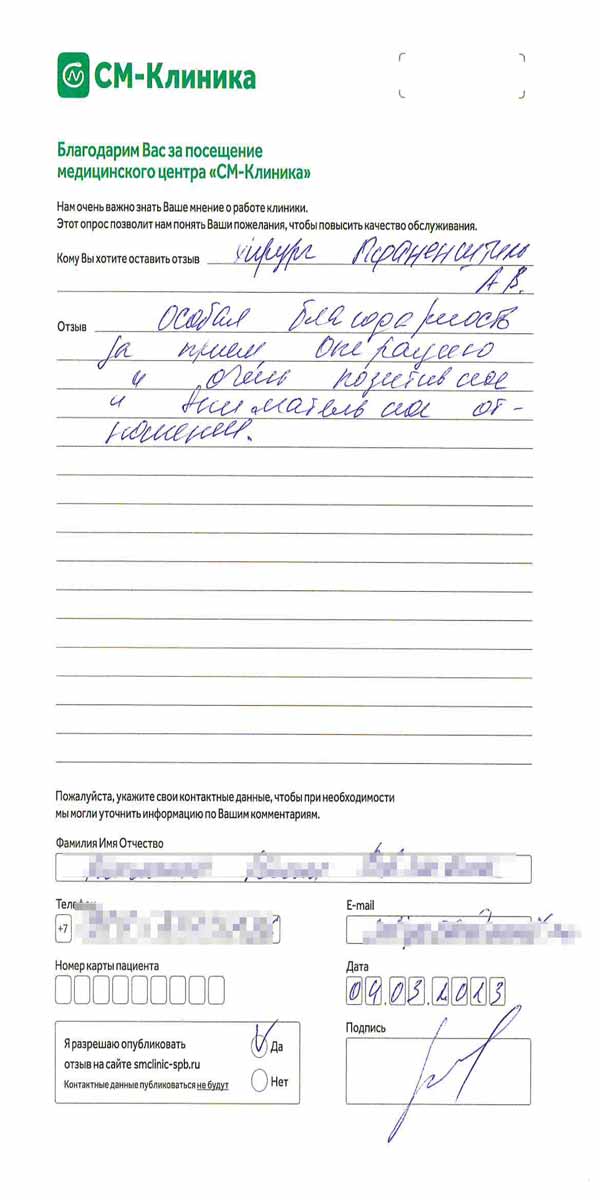 СМ-Клиника
Благодарим Вас за посещение
медицинского центра «СМ-Клиника»
Нам очень важно знать Ваше мнение о работе клиники.
Этот опрос позволит нам понять Ваши пожелания, чтобы повысить качество обслуживания.
Кому Вы хотите оставить отзыв хирург
А В.
Отзыв Особая благодарность
за прием операцию
и очень позитивное
и внимательное от-
ношение.
Пожалуйста, укажите свои контактные данные, чтобы при необходимости
мы могли уточнить информацию по Вашим комментариям.
Фамилия Имя Отчество
E-mail
+7
Номер карты пациента
Дата
04.03.2013
Я разрешаю опубликовать
отзыв на сайте smclinic-spb.ru
Контактные данные публиковаться не будут
Да
Нет
Подпись